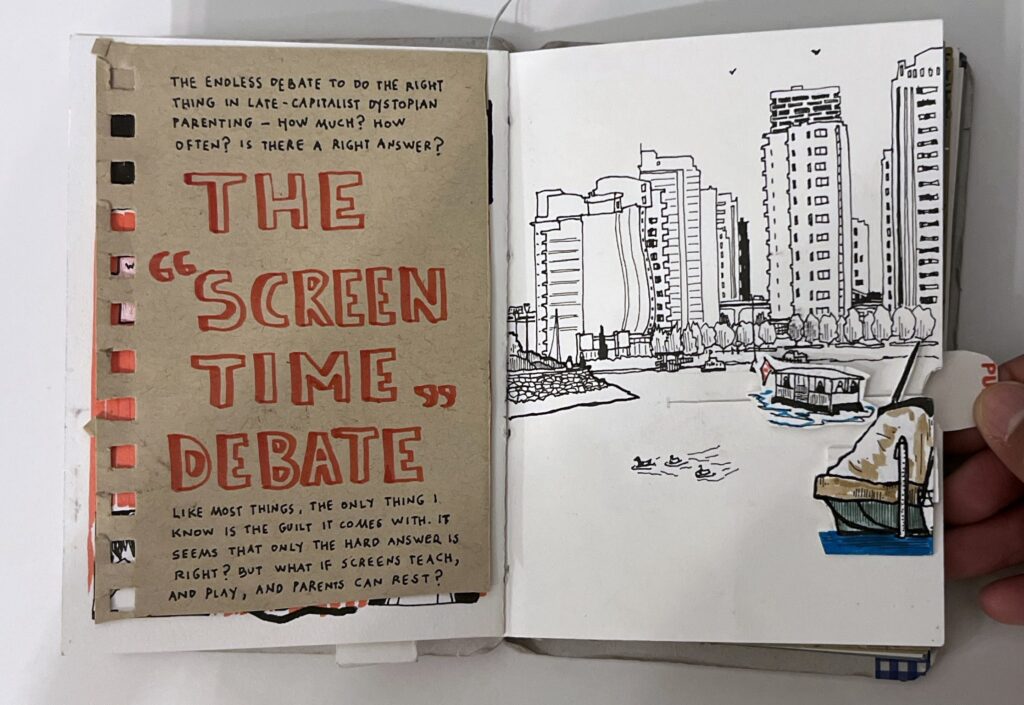 THE ENDLESS DEBATE TO DO THE RIGHT
THING IN LATE-CAPITALIST DYSTOPIAN
PARENTING – HOW MUCH? HOW
OFTEN? IS THERE A RIGHT ANSWER?
THE
“SCREEN
TIME„
DEBATE
LIKE MOST THINGS, THE ONLY THING I
KNOW IS THE GUILT IT COMES WITH. IT
SEEMS THAT ONLY THE HARD ANSWER IS
RIGHT? BUT WHAT IF SCREENS TEACH,
AND PLAY, AND PARENTS CAN REST?